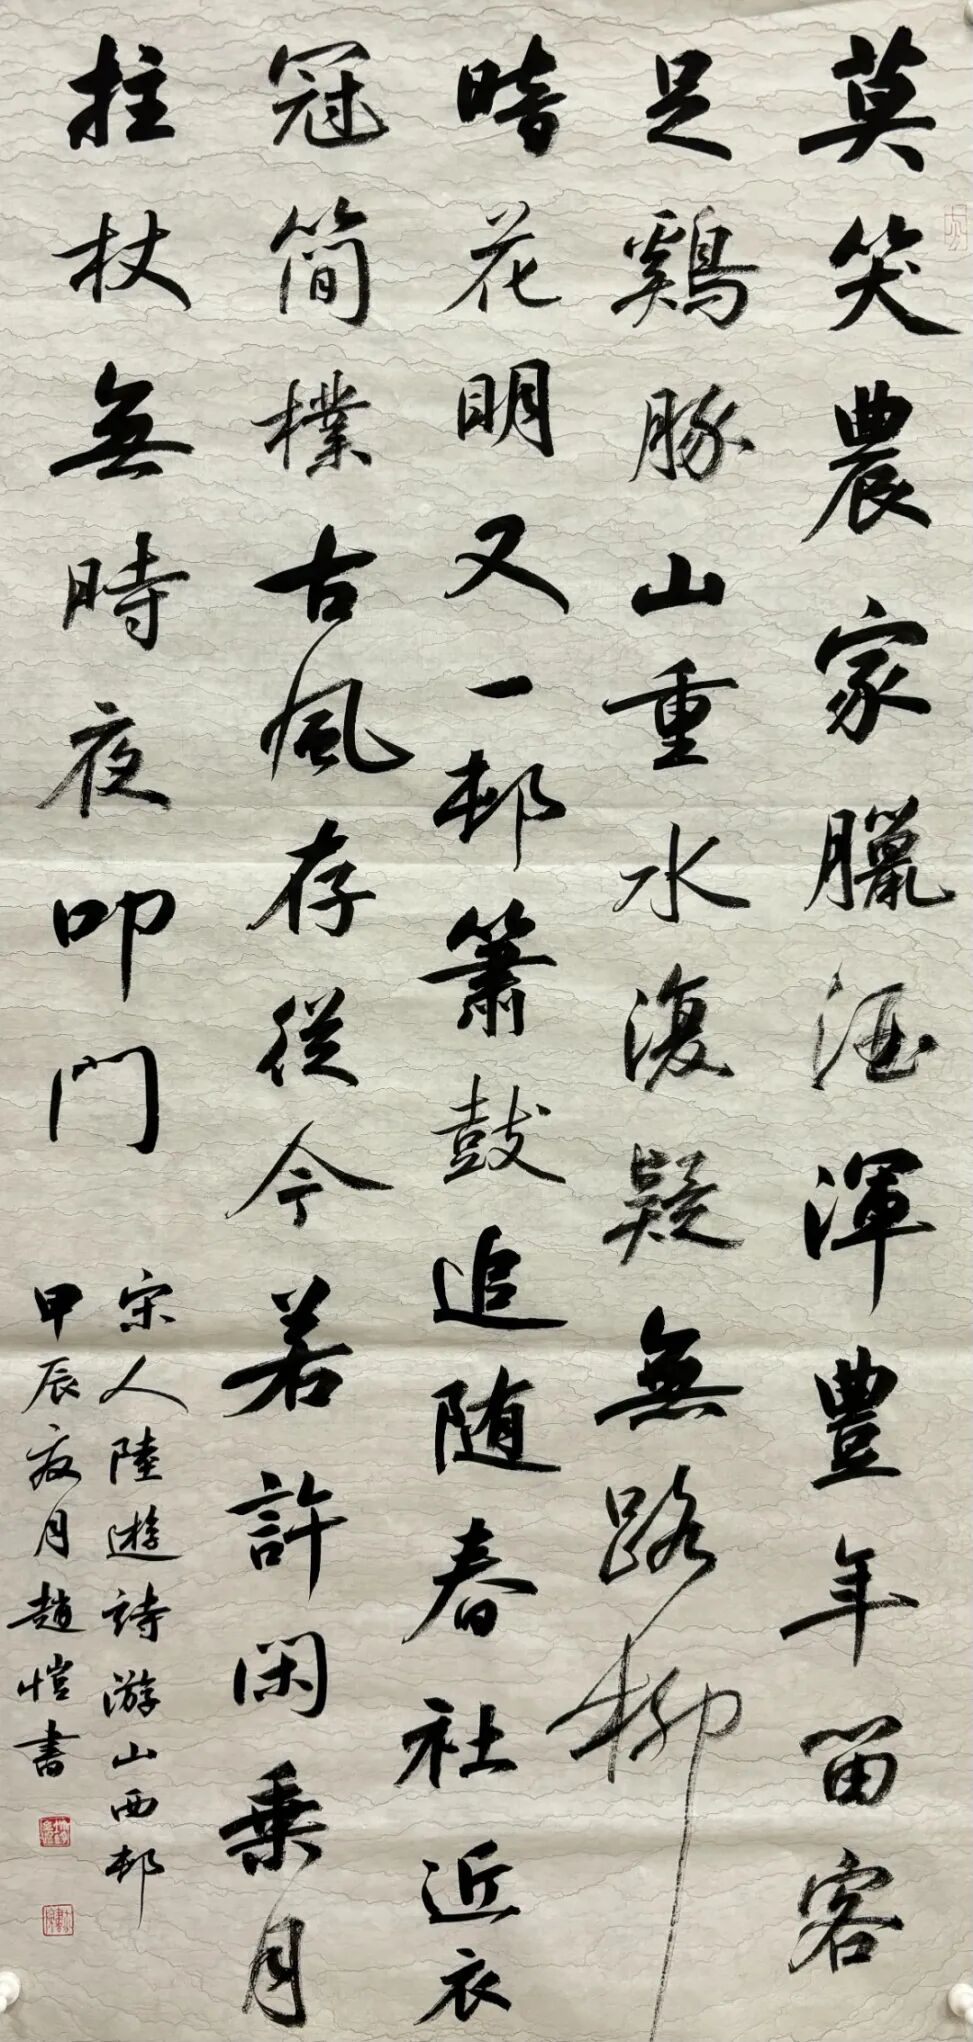 莫笑農家臘酒渾豐年留客
足鷄豚山重水復疑無路柳
暗花明又一邨簫鼓追随春社近衣
冠簡樸古風存從今若許閑乗月
拄杖無時夜叩門
宋人陸遊詩游山西邨
甲辰夜月趙愷書